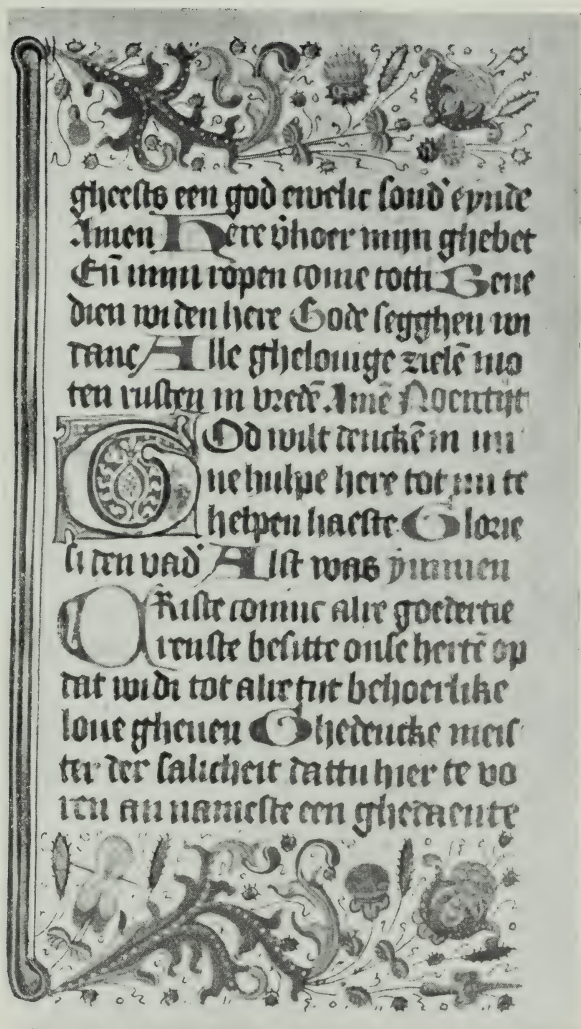 gheests een god ewelic sond' eynde
Amen Here v̄hoer mijn ghebet
En̄ mijn ropen come totti Bene
dien wi den here Gode segghen wi
danc Alle ghelouige zielē mo
ten rusten in vredē. Amē Noentijt
GOd wilt dencke̅ in mi
ne hulpe here tot mi te
helpen haeste Glorie
si den vad' Alst was ynnnen
CRiste comme alre goedertie
renste besitte onse hertē op
dat wi di tot alre tijt behoerlike
loue gheuen Ghedencke meis
ter der salicheit dattu hier te vo
ren an nameste een ghedaente